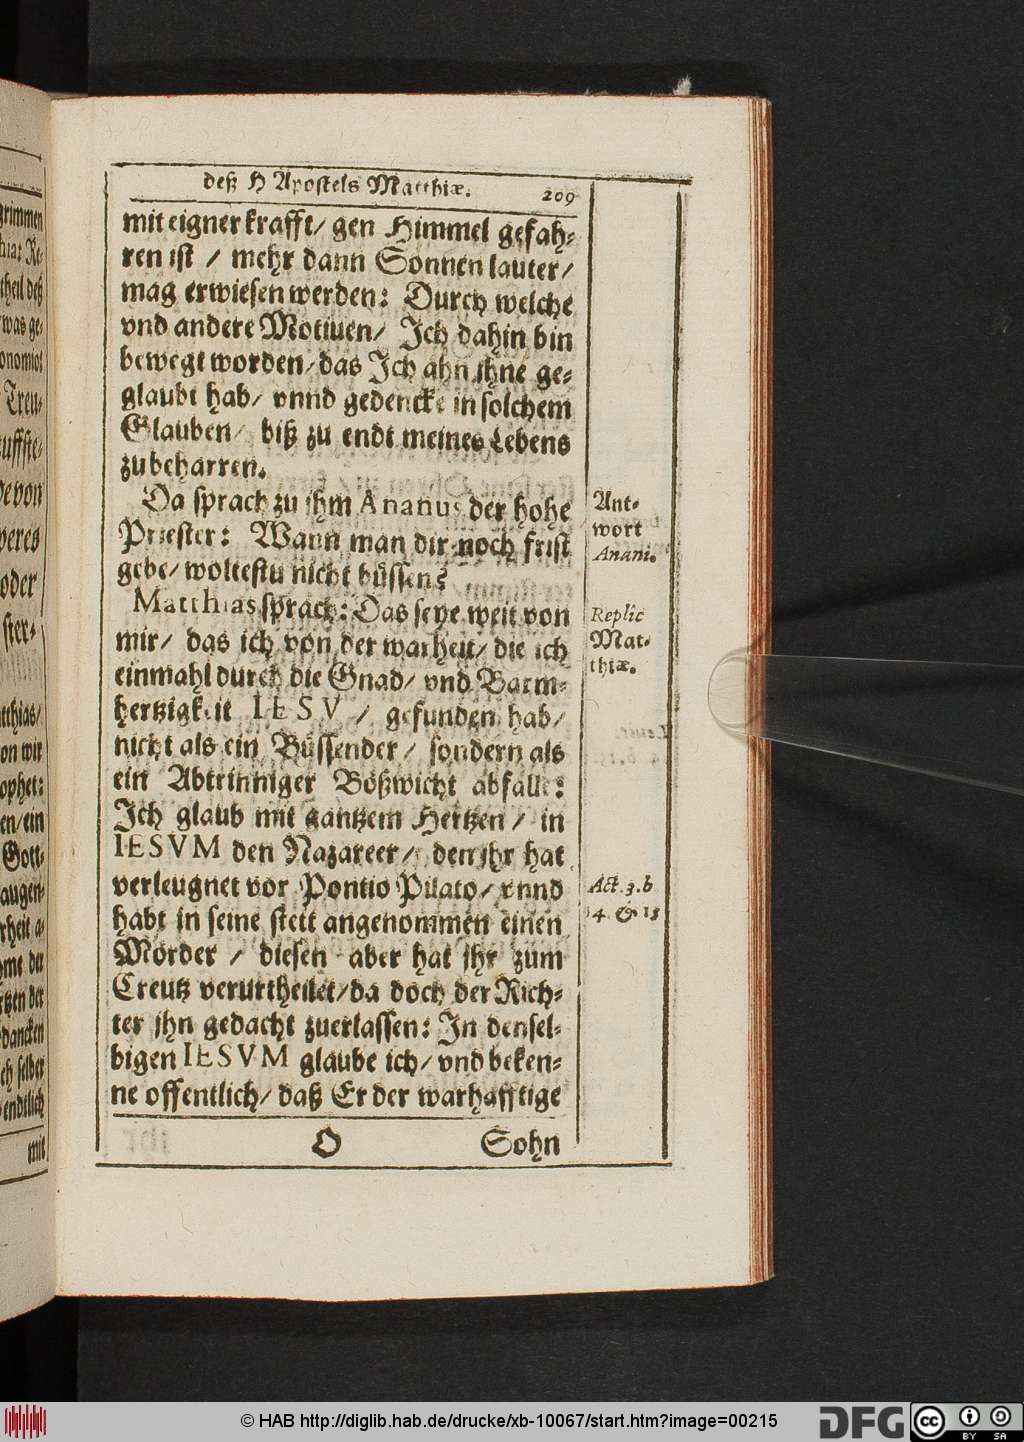 deß H Apostels Matthiæ. 209
mit eigner krafft/ gen Himmel gefah-
ren ist / mehr dann Sonnen lauter/
mag erwiesen werden: Durch welche
vnd andere Motiuen/ Ich dahin bin
bewegt worden/ das Ich ahn ihne ge-
glaubt hab/ vnnd gedencke in solchem
Glauben/ biß zu endt meines Lebens
zubeharren.
Da sprach zu ihm Ananus der hohe
Priester: Wann man dir noch frist
gebe/ woltestu nicht büssen?
Matthias sprach: Das seye weit von
mir/ das ich von der warheit/ die ich
einmahl durch die Gnad/ vnd Barm-
hertzigkeit IESV / gefunden hab/
nicht als ein Büssender/ sondern als
ein Abtrinniger Bößwicht abfalle:
Ich glaub mit gantzem Hertzen/ in
IESVM den Nazareer/ den ihr hat
verleugnet vor Pontio Pilato/ vnnd
habt in seine stett angenommen einen
Mörder / diesen aber hat ihr zum
Creutz verurtheilet/ da doch der Rich-
ter ihn gedacht zuerlassen: In densel-
bigen IESVM glaube ich/ vnd beken-
ne offentlich/ daß Er der warhafftige
O Sohn
Ant-
wort
Anani.
Replic
Mat-
thiæ.
Act. 3. b
14 & 15
grimmen
theil deß
was ge-
Treu-
uffste-
de von
oder
ster-
tthias/
on wir
ophet:
en/ ein
Gott-
augen-
rheit a-
me der
rtzen der
dancken
ch selber
endtlich
mit
© HAB http://diglib.hab.de/drucke/xb-10067/start.htm?image=00215
DFG
cc
BY SA